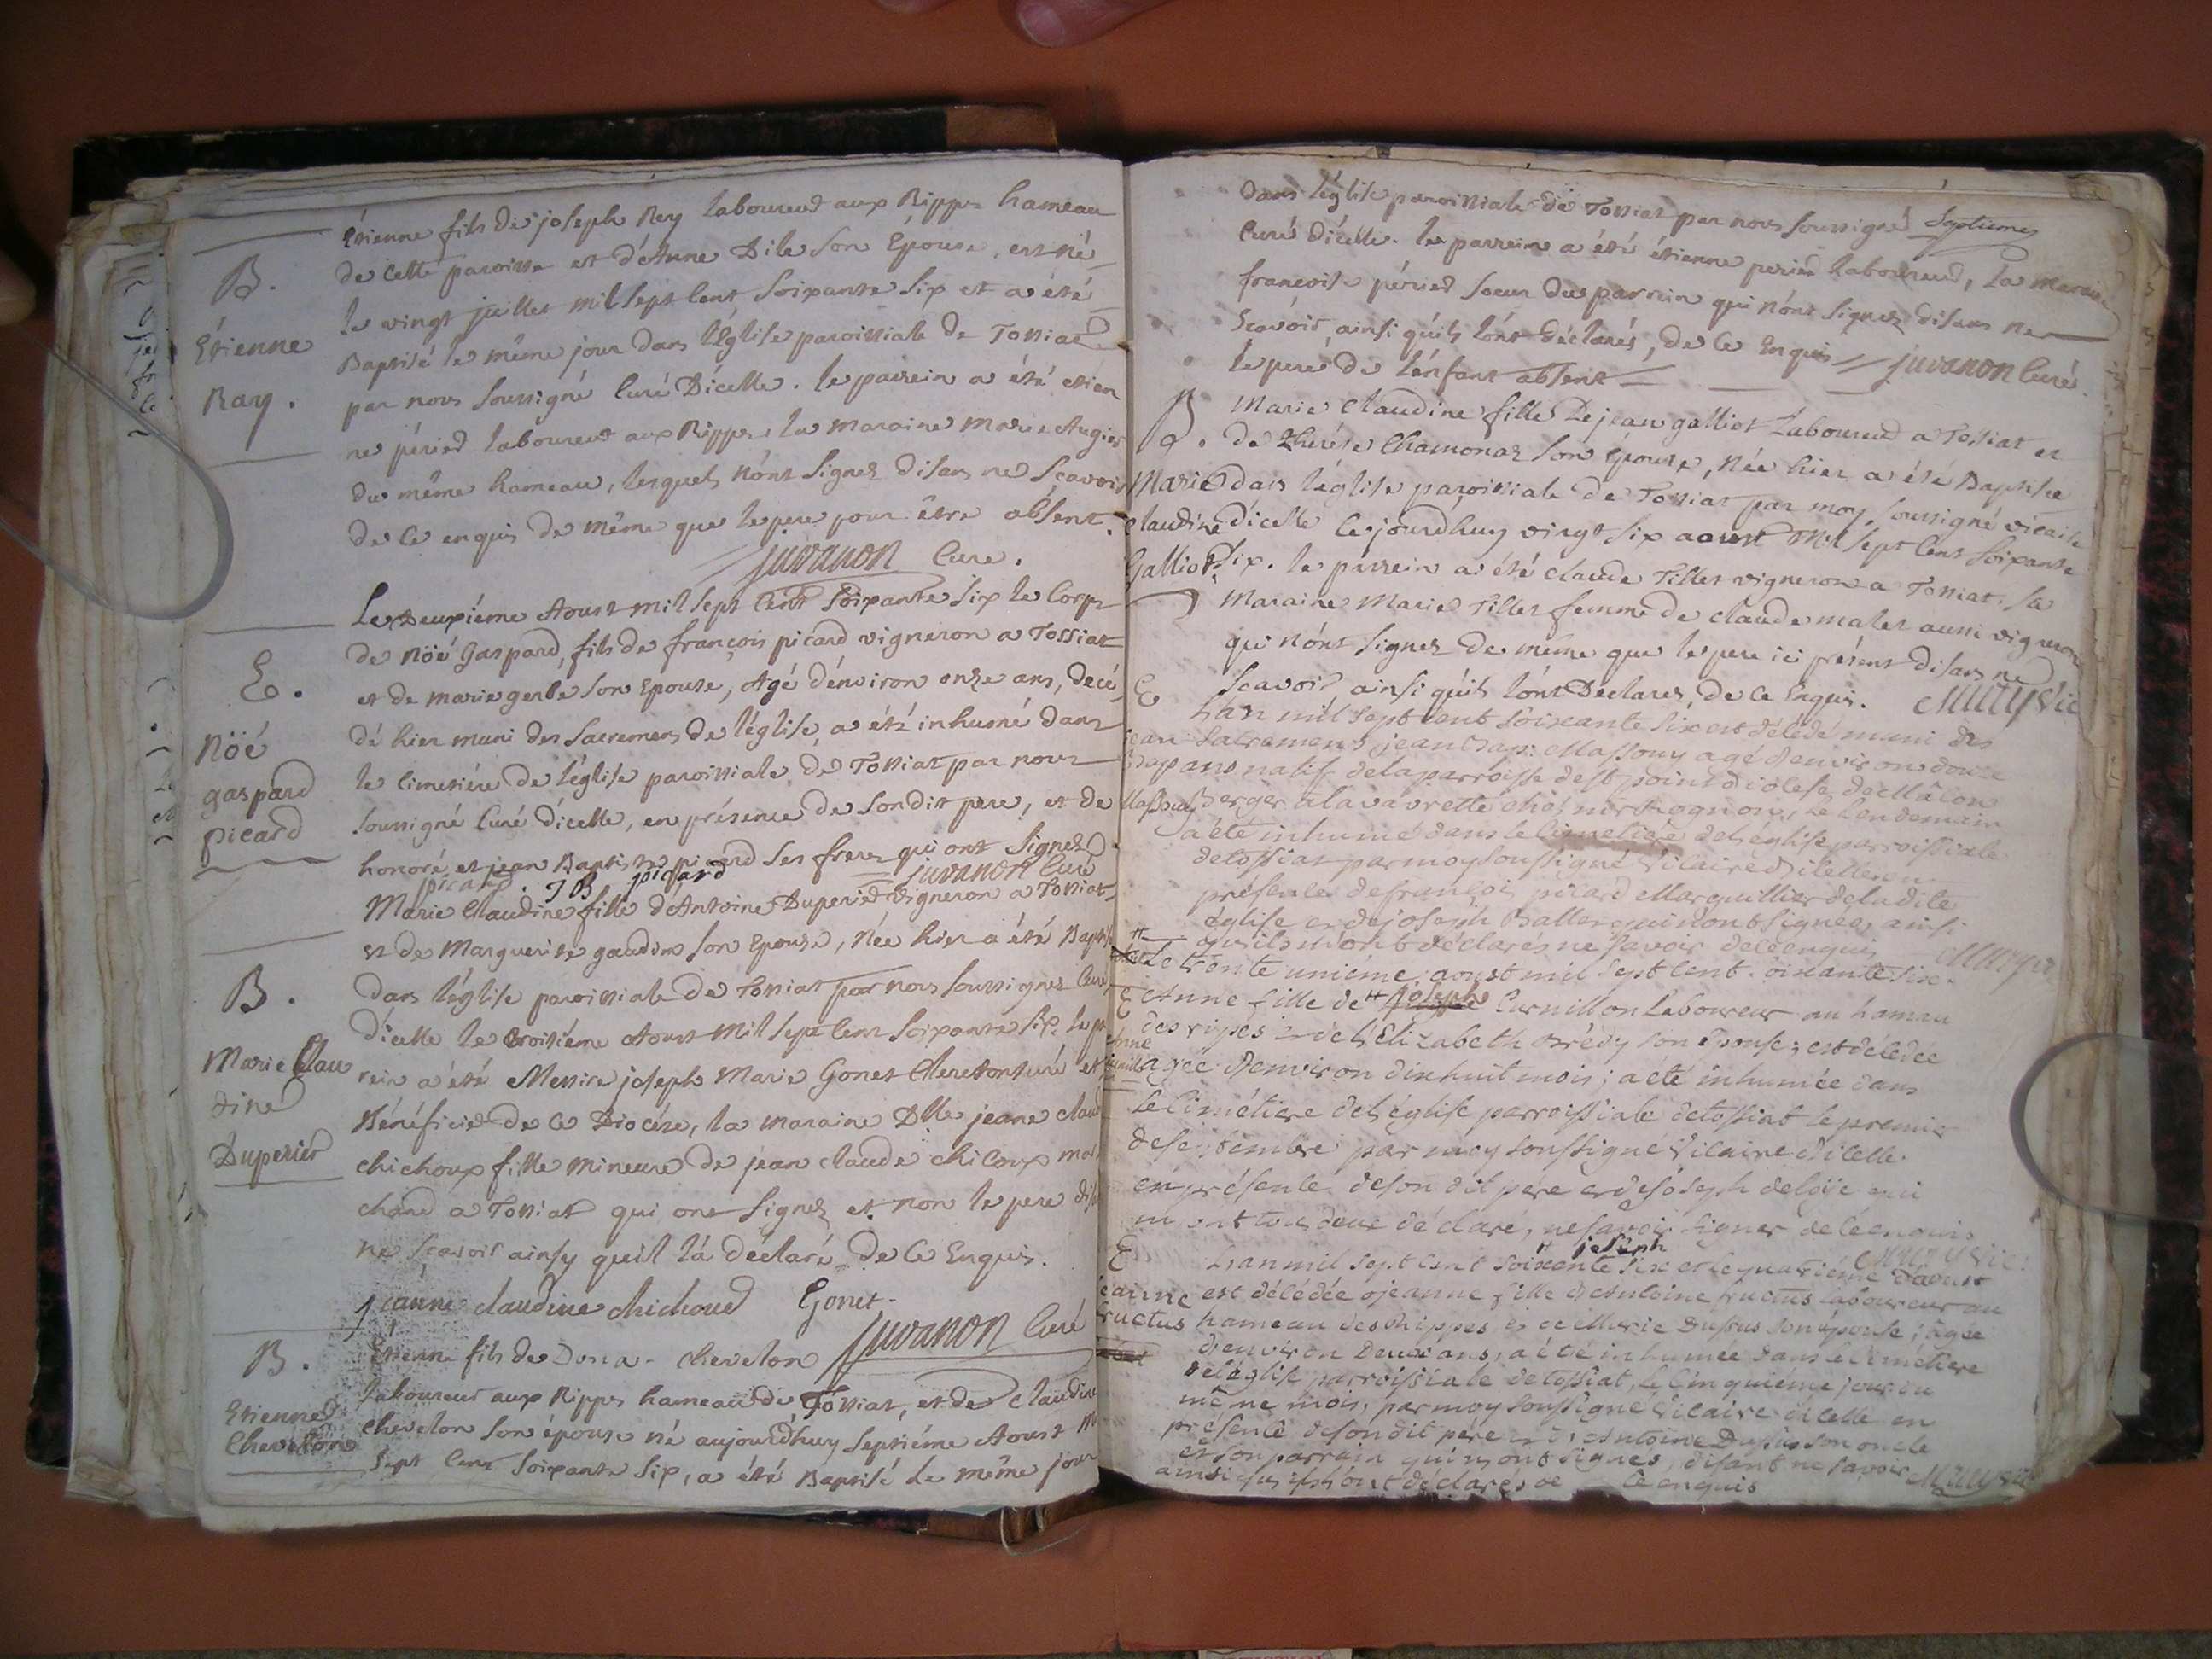 B.
Étienne
Ray.
Etienne fils de joseph Rey laboureur aux Rippes hameau
de cette paroisse et d'Anne Dile son Epouse, est né
le vingt juillet mil sept cent soixante six et a été
Baptisé le même jour dans l'Eglise paroissiale de Tossiat
par nous soussigné Curé D'icelle. le parrein a été etien
ne périer laboureur aux Rippes, la maraine marie Augier
du même hameau, lesquels n'ont signez disans ne sçavoir
de ce enquis de même que le pere pour être absent.
juvanon Curé.
E.
Nöé
gaspard
picard
Le Deuxiéme Aoust mil sept Cent soixante six le Corps
de nöé Gaspard, fils de françois picard vigneron a Tossiat
et de marie gerbe son Epouse, Agé d'environ onze ans, décé
dé hier muni des sacremens de l'église, a été inhumé dans
le Cimetiére de l'église paroissiale de Tossiat par nous
soussigné Curé d'icelle, en présence de sondit pere, et de
honoré et jean Baptiste picard ses freres qui ont signez
picard . J B picard juvanon Curé
B.
Marie Clau
dine
Duperier
Marie Claudine fille d'Antoine Duperier vigneron a Tossiat
et de Marguerite gaudin son Epouse, Née hier a été Baptisé
dans l'église paroissiale de Tossiat par nous soussignez Curé
d'icelle le troisiéme Aoust mil sept Cent soixante six, le par
rein a été Messire joseph Marie Gonet Clerc tonsuré et
Bénéficier de ce Diocése, la maraine Dlle jeane claud
chichoux fille mineure de jean claude chicoux mar
chand a Tossiat qui ont signez et non le pere dis
ne sçavoir ainsy qu'il l'a déclaré de ce Enquis.
jeanne claudine chichoud Gonet.
juvanon Curé
B.
Etienne
Chevelon
Étienne fils de Dona- chevelon
laboureur aux Rippes hameau de Tossiat, et de Claudine
chevelon son épouse né aujourdhuy septiéme Aoust m
sept Cent soixante six, a été Baptisé le même jour
dans l'église paroissiale de Tossiat par nous soussigné
Curé d'icelle. le parrein a été étienne perier laboureur, la maraine
françoise périer soeur du parrein qui n'ont signez disans ne
sçavoir, ainsi qu'ils l'ont déclarés, de ce Enquis juvanon Curé
le pere de l'enfant absent
B.
Marie
claudine
Galliot
Marie Claudine fille De jean galliot Laboureur a Tossiat et
de Thérése Chamonas son Epouse, Née hier a été Baptisée
dans l'église paroissiale de Tossiat par moy soussigné vicaire
d'icelle ce jourdhuy vingt six aoust Mil sept Cens soixante
six. le parrein a été claude Tiller vigneron a Tossiat, la
Maraine Marie Tiller femme de claude maler aussi vigneron
qui n'ont signez de même que le pere ici présent disans ne
scavoir, ainsi qu'ils l'ont Declarez, de ce Enquis.
E
Lan mil sept cent soixante six est décédé muni des
sacremens jean bap: Massouy agé denviron douze
ans natif de la parroisse de st point diocése de Mâcon
Berger a lavavrette chés mr rognon, le lendemain
a été inhumé dans le cimetiere de l'eglise parroissiale
de tossiat par moy soussigné vicaire dicelle en
présence de françois picard Marguillier de la dite
église et de joseph Baller qui n'ont signés, ainsi
qu'ils m'ont déclarés ne savoir de ce enquis
Le trente unieme aoust mil sept cent soixante six.
E
Anne fille de joseph Curnillon Laboureur au hamau
des ripes et de Elizabeth Brédy son Epouse; est décédée
agée denviron dixhuit mois; a été inhumée dans
le Cimétiere de l'église parroissiale de tossiat le premier
de septembre par moy soussigné vicaire dicelle.
en présence de son dit pére et de joseph deloye qui
m'ont tous deux déclaré, ne savoir signer de ce enquis
joseph
E
jeanne
fructus
Lan mil sept cent soixante six et le quatriéme daoust
est décédée jeanne fille d'Antoine fructus laboureur au
hameau des rhippes et de Marie Dufour son épouse; âgée
d'environ deux ans, a été inhumée dans le cimétiere
de l'église parroissiale de tossiat, le cinquieme jour du
même mois, par moy soussigné vicaire dicelle en
présence de son dit pére et Antoine Dufour son oncle
et son parrain qui n'ont signés, disant ne savoir
ainsi qu'ils l'ont déclarés de ce enquis